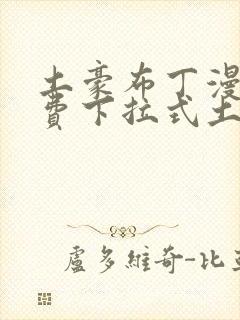 土豪布丁漫
費下拉式土
盧多維奇-比亞